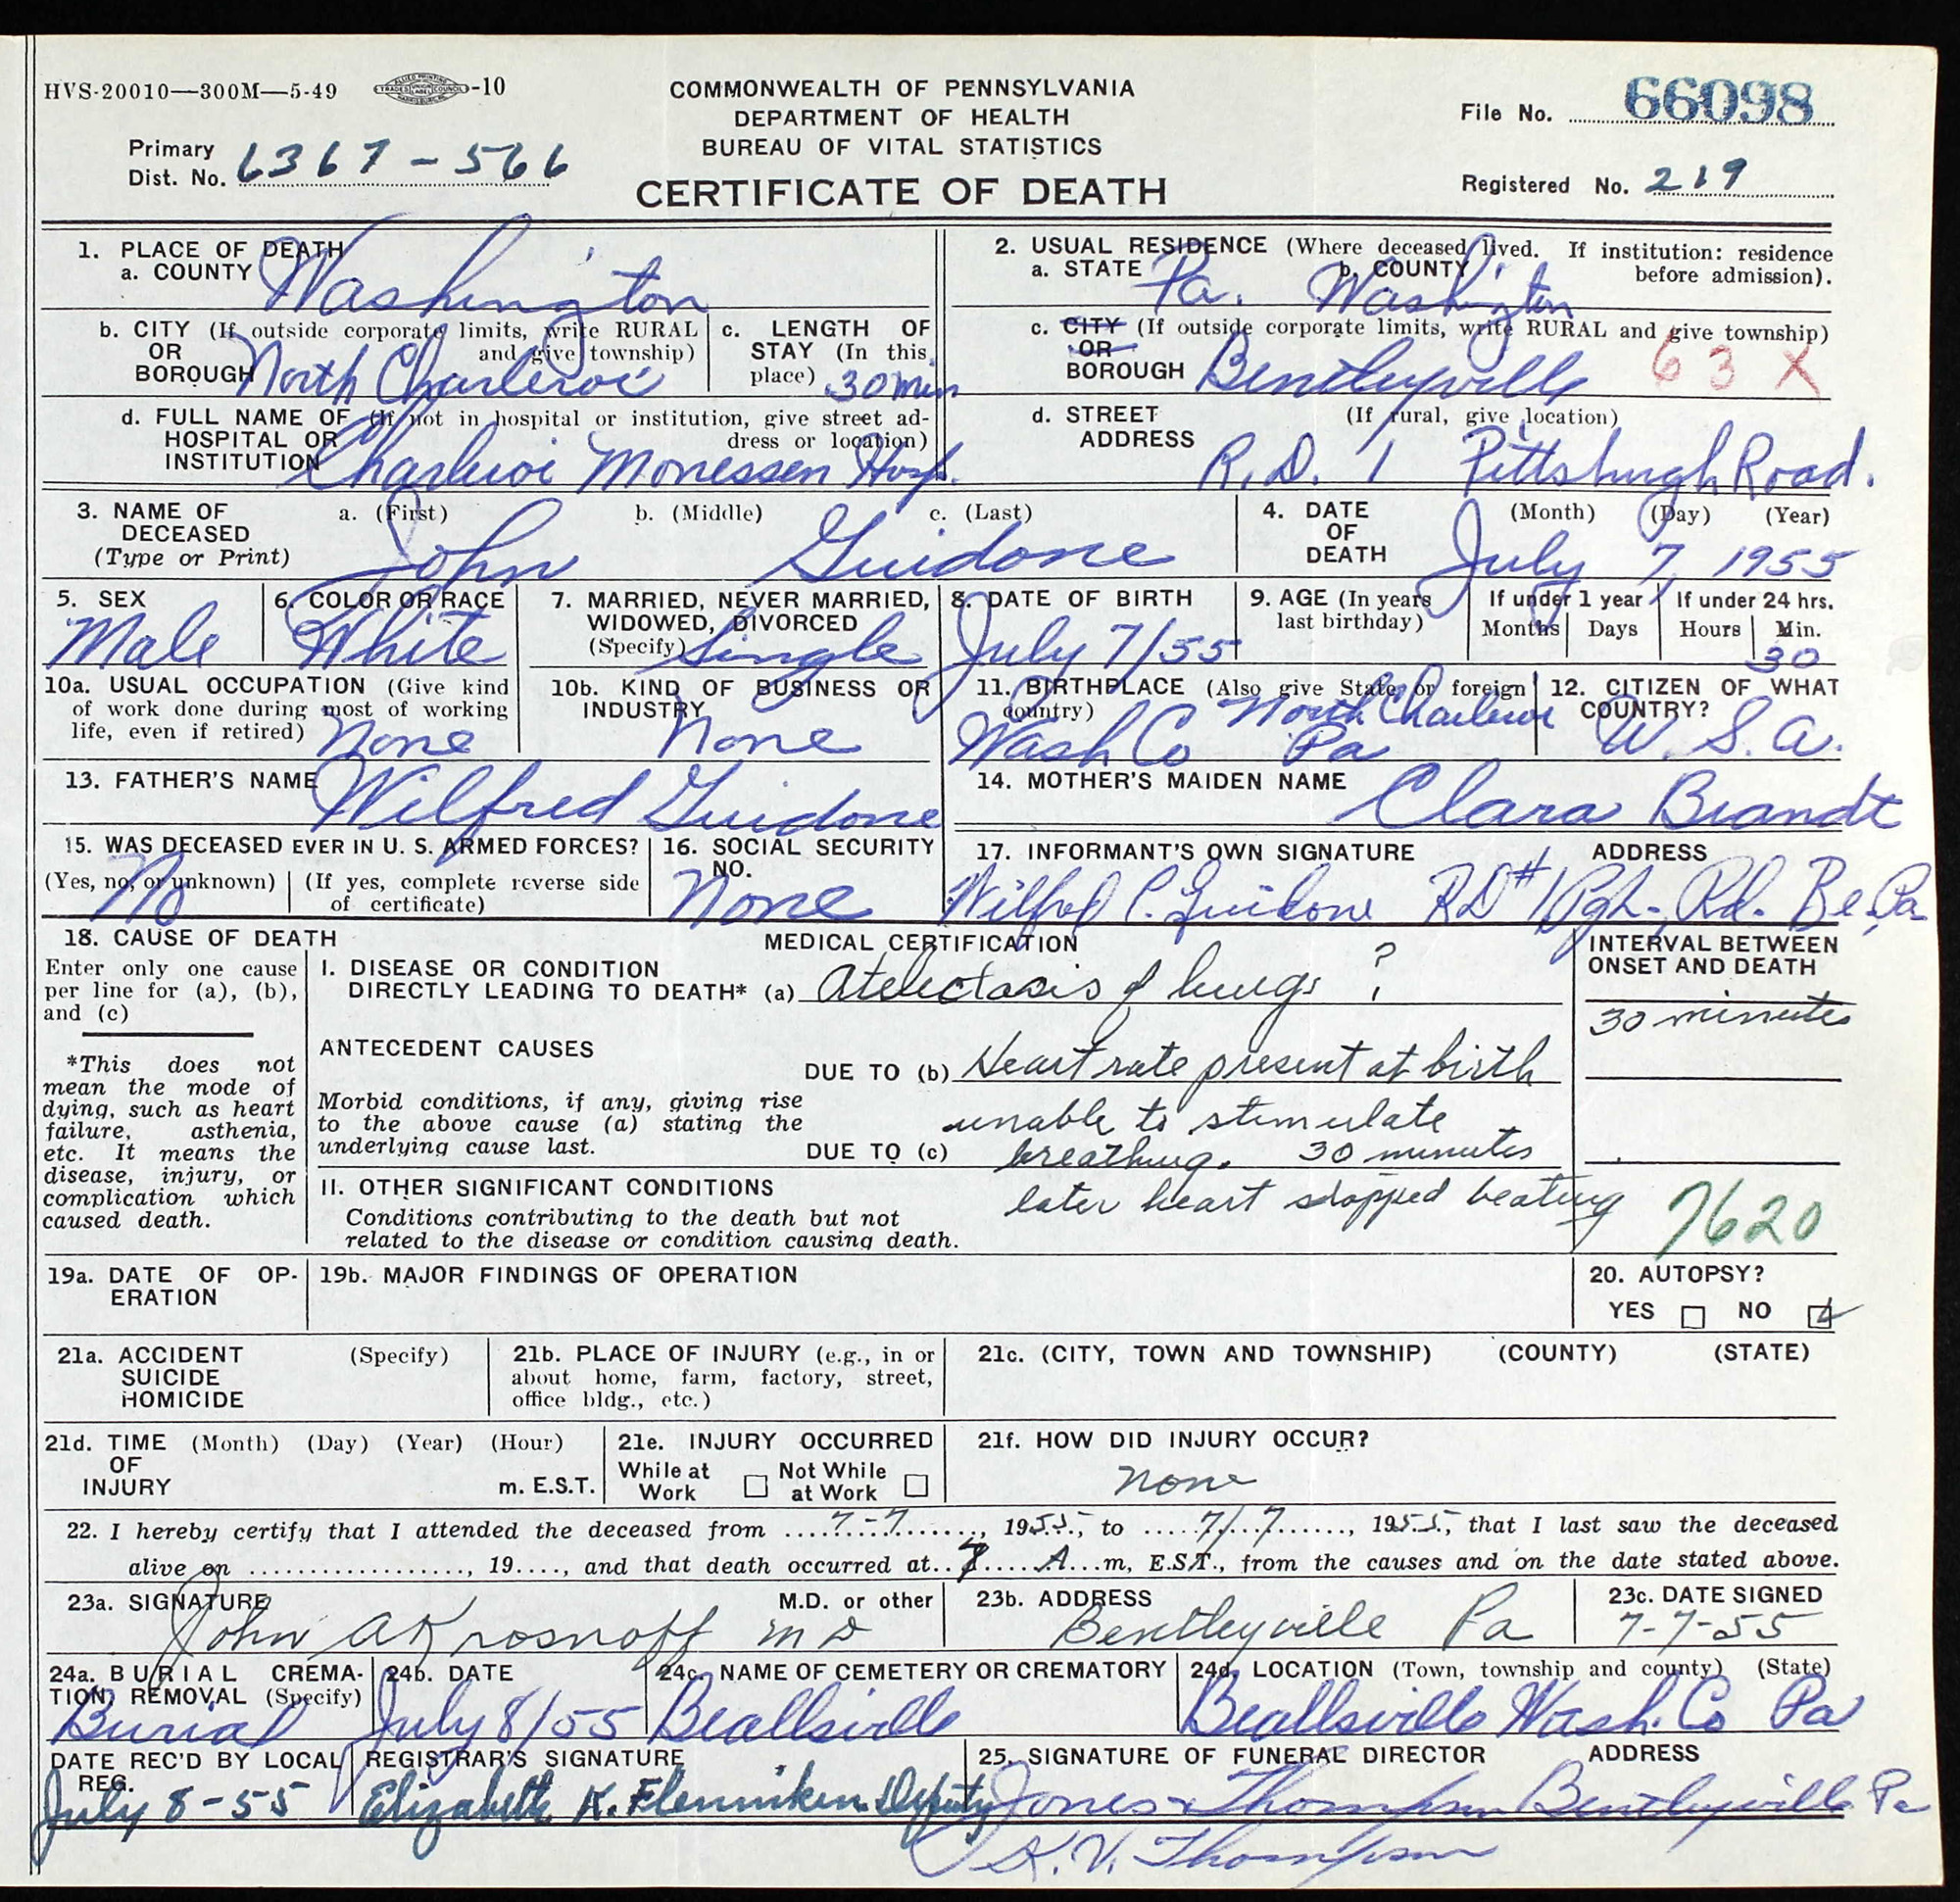 HVS-20010—300M—5-49 -10
COMMONWEALTH OF PENNSYLVANIA
DEPARTMENT OF HEALTH
BUREAU OF VITAL STATISTICS
CERTIFICATE OF DEATH
File No. 66098
Primary
Dist. No. 6367-566
Registered No. 219
1. PLACE OF DEATH
a. COUNTY Washington
2. USUAL RESIDENCE (Where deceased lived. If institution: residence
before admission).
a. STATE Pa. b. COUNTY Washington
b. CITY (If outside corporate limits, write RURAL
OR and give township)
BOROUGH North Charleroi
c. LENGTH OF
STAY (In this
place) 30 min
c. CITY (If outside corporate limits, write RURAL and give township)
OR
BOROUGH Bentleyville 63 X
d. FULL NAME OF (If not in hospital or institution, give street ad-
HOSPITAL OR dress or location)
INSTITUTION Charleroi Monessen Hosp.
d. STREET (If rural, give location)
ADDRESS R.D. 1 Pittsburgh Road.
3. NAME OF a. (First) b. (Middle) c. (Last)
DECEASED
(Type or Print) John Guidone
4. DATE (Month) (Day) (Year)
OF
DEATH July 7, 1955
5. SEX
Male
6. COLOR OR RACE
White
7. MARRIED, NEVER MARRIED,
WIDOWED, DIVORCED
(Specify) Single
8. DATE OF BIRTH
July 7/55
9. AGE (In years
last birthday)
If under 1 year
Months Days
If under 24 hrs.
Hours Min.
30
10a. USUAL OCCUPATION (Give kind
of work done during most of working
life, even if retired) None
10b. KIND OF BUSINESS OR
INDUSTRY
None
11. BIRTHPLACE (Also give State or foreign
country) North Charleroi
Wash Co Pa
12. CITIZEN OF WHAT
COUNTRY?
U.S.A.
13. FATHER'S NAME Wilfred Guidone
14. MOTHER'S MAIDEN NAME Clara Brandt
15. WAS DECEASED EVER IN U. S. ARMED FORCES?
(Yes, no, or unknown) (If yes, complete reverse side
of certificate)
No
16. SOCIAL SECURITY
NO.
None
17. INFORMANT'S OWN SIGNATURE ADDRESS
Wilfred C. Guidone RD#1 Pgh. Rd. Be, Pa
18. CAUSE OF DEATH
Enter only one cause
per line for (a), (b),
and (c)
*This does not
mean the mode of
dying, such as heart
failure, asthenia,
etc. It means the
disease, injury, or
complication which
caused death.
MEDICAL CERTIFICATION
I. DISEASE OR CONDITION
DIRECTLY LEADING TO DEATH* (a) Atelectasis of lungs ?
INTERVAL BETWEEN
ONSET AND DEATH
30 minutes
ANTECEDENT CAUSES
DUE TO (b) Heart rate present at birth
Morbid conditions, if any, giving rise
to the above cause (a) stating the
underlying cause last.
unable to stimulate
DUE TO (c) breathing. 30 minutes
II. OTHER SIGNIFICANT CONDITIONS
later heart stopped beating
Conditions contributing to the death but not
related to the disease or condition causing death.
7620
19a. DATE OF OP-
ERATION
19b. MAJOR FINDINGS OF OPERATION
20. AUTOPSY?
YES NO
21a. ACCIDENT (Specify)
SUICIDE
HOMICIDE
21b. PLACE OF INJURY (e.g., in or
about home, farm, factory, street,
office bldg., etc.)
21c. (CITY, TOWN AND TOWNSHIP) (COUNTY) (STATE)
21d. TIME (Month) (Day) (Year) (Hour)
OF
INJURY m. E.S.T.
21e. INJURY OCCURRED
While at Not While
Work at Work
21f. HOW DID INJURY OCCUR?
none
22. I hereby certify that I attended the deceased from 7-7, 1955, to 7/7, 1955, that I last saw the deceased
alive on ..................., 19...., and that death occurred at A m, E.S.T., from the causes and on the date stated above.
23a. SIGNATURE M.D. or other
John A Krosnoff MD
23b. ADDRESS
Bentleyville Pa
23c. DATE SIGNED
7-7-55
24a. BURIAL CREMA-
TION, REMOVAL (Specify)
Burial
24b. DATE
July 8/55
24c. NAME OF CEMETERY OR CREMATORY
Beallsville
24d. LOCATION (Town, township and county) (State)
Beallsville Wash. Co Pa
DATE REC'D BY LOCAL
REG.
July 8-55
REGISTRAR'S SIGNATURE
Elizabeth K. Flenniken Deputy
25. SIGNATURE OF FUNERAL DIRECTOR ADDRESS
Jones & Thompson Bentleyville Pa
K. V. Thompson